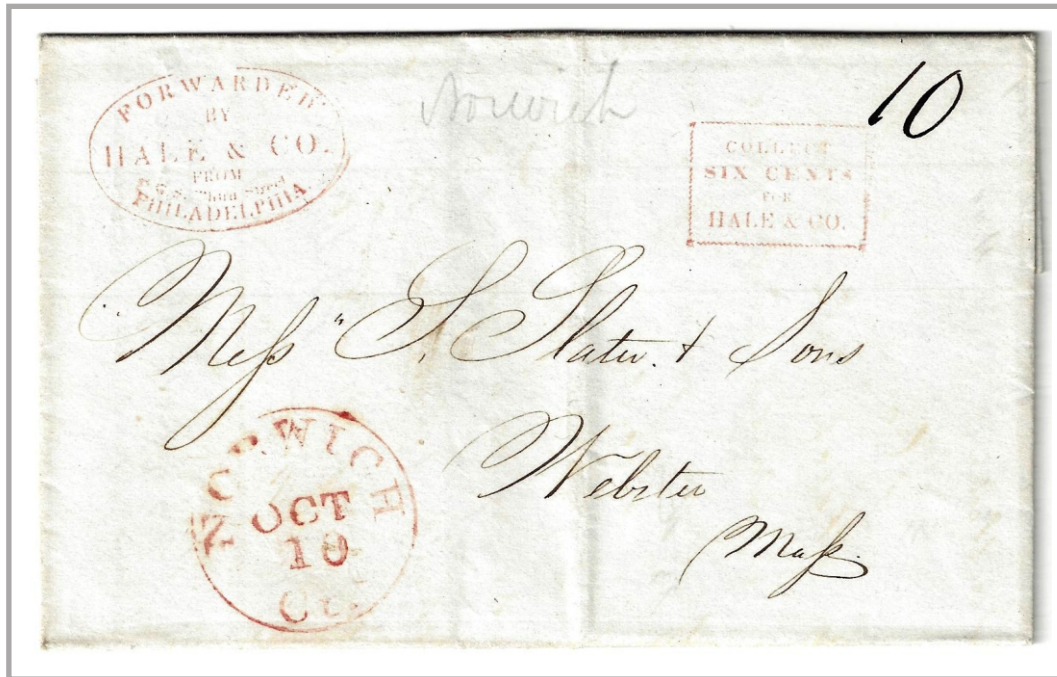 FORWARDED
BY
HALE & CO.
FROM
Third Street
PHILADELPHIA.
Norwich
10
COLLECT
SIX CENTS
FOR
HALE & CO.
Mess" S. Slater & Sons
Webster
Mass.
NORWICH
OCT
10
Ct.